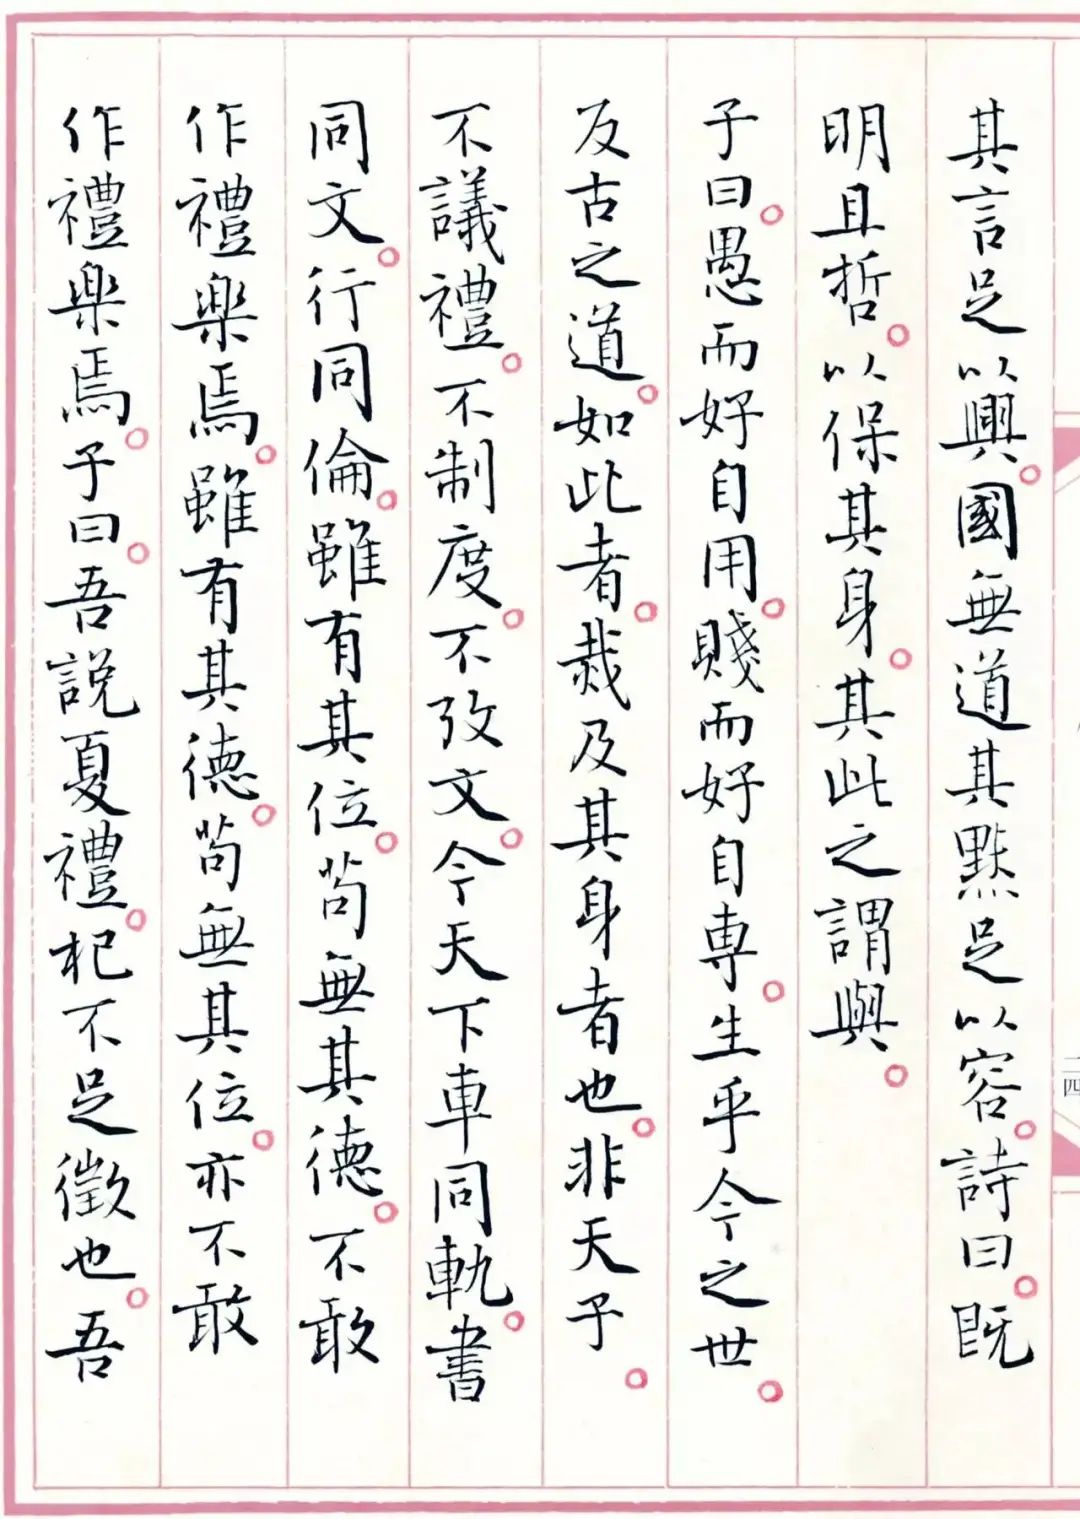 其言足以興。國無道其默足以容。詩曰。既
明且哲。以保其身。其此之謂與。
子曰。愚而好自用。賤而好自專。生乎今之世。
反古之道。如此者。烖及其身者也。非天子。
不議禮。不制度。不攷文。今天下車同軌。書
同文。行同倫。雖有其位。苟無其德。不敢
作禮樂焉。雖有其德。苟無其位。亦不敢
作禮樂焉。子曰。吾說夏禮。杞不足徵也。吾
二四